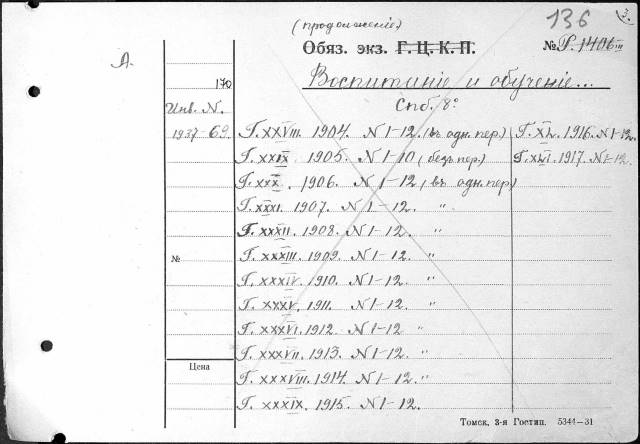 136
(продолженіе)
Обяз. экз. Г. Ц. К. П. № Р. 1406 III
А.
170
Воспитаніе и обученіе...
Инв. N. Спб. 8°
1937-69. Г. XXVIII. 1904. N 1-12. (въ одн. пер.) Г. XL. 1916. N 1-12.
Г. XXIX. 1905. N 1-10 (безъ пер.) Г. XLI. 1917. N 1-12.
Г. XXX. 1906. N 1-12 (въ одн. пер.)
Г. XXXI. 1907. N 1-12. "
Г. XXXII. 1908. N 1-12. "
№ Г. XXXIII. 1909. N 1-12. "
Г. XXXIV. 1910. N 1-12. "
Г. XXXV. 1911. N 1-12. "
Г. XXXVI. 1912. N 1-12 "
Г. XXXVII. 1913. N 1-12. "
Цена
Г. XXXVIII. 1914. N 1-12. "
Г. XXXIX. 1915. N 1-12.
Томск. 3-я Гостип. 5344—31